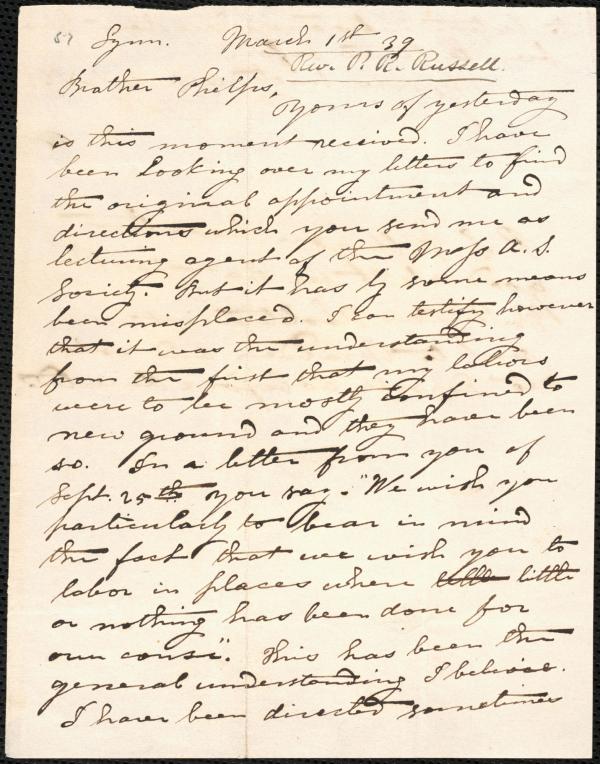 57
Lynn. March 1st 39
Rev. P. R. Russell.
Brother Phelps,
Yours of yesterday
is this moment received. I have
been looking over my letters to find
the original appointment and
directions which you send me as
lecturing agent of the Mass A. S.
Society. But it has by some means
been misplaced. I can testify however
that it was the understanding
from the first that my labors
were to be mostly confined to
new ground and they have been
so. In a letter from you of
Sept. 25th you say. "We wish you
particularly to bear in mind
the fact that we wish you to
labor in places where little little
or nothing has been done for
our cause". This has been the
general understanding I believe.
I have been directed sometimes